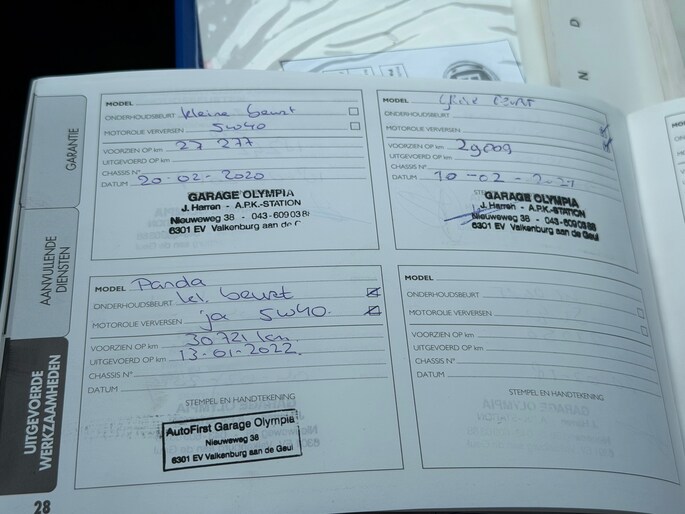 GARANTIE
AANVULLENDE
DIENSTEN
UITGEVOERDE
WERKZAAMHEDEN
28
MODEL
ONDERHOUDSBEURT kleine beurt
MOTOROLIE VERVERSEN 5w40
VOORZIEN OP km 27 277
UITGEVOERD OP km
CHASSIS N°
DATUM 20-02-2020
GARAGE OLYMPIA
J. Harren - A.P.K.-STATION
Nieuweweg 38 - 043-609 03 8
6301 EV Valkenburg aan de G
MODEL beurt
ONDERHOUDSBEURT
MOTOROLIE VERVERSEN
VOORZIEN OP km 29909
UITGEVOERD OP km
CHASSIS N°
DATUM 10-02-2021
GARAGE OLYMPIA
J. Harren - A.P.K.-STATION
Nieuweweg 38 - 043-609 03 88
6301 EV Valkenburg aan de Geul
MODEL Panda
ONDERHOUDSBEURT kl. beurt
MOTOROLIE VERVERSEN ja 5w40.
VOORZIEN OP km 30721 km.
UITGEVOERD OP km 13-01-2022.
CHASSIS N°
DATUM
STEMPEL EN HANDTEKENING
AutoFirst Garage Olympia
Nieuweweg 38
6301 EV Valkenburg aan de Geul
MODEL
ONDERHOUDSBEURT
MOTOROLIE VERVERSEN
VOORZIEN OP km
UITGEVOERD OP km
CHASSIS N°
DATUM
STEMPEL EN HANDTEKENING
N D